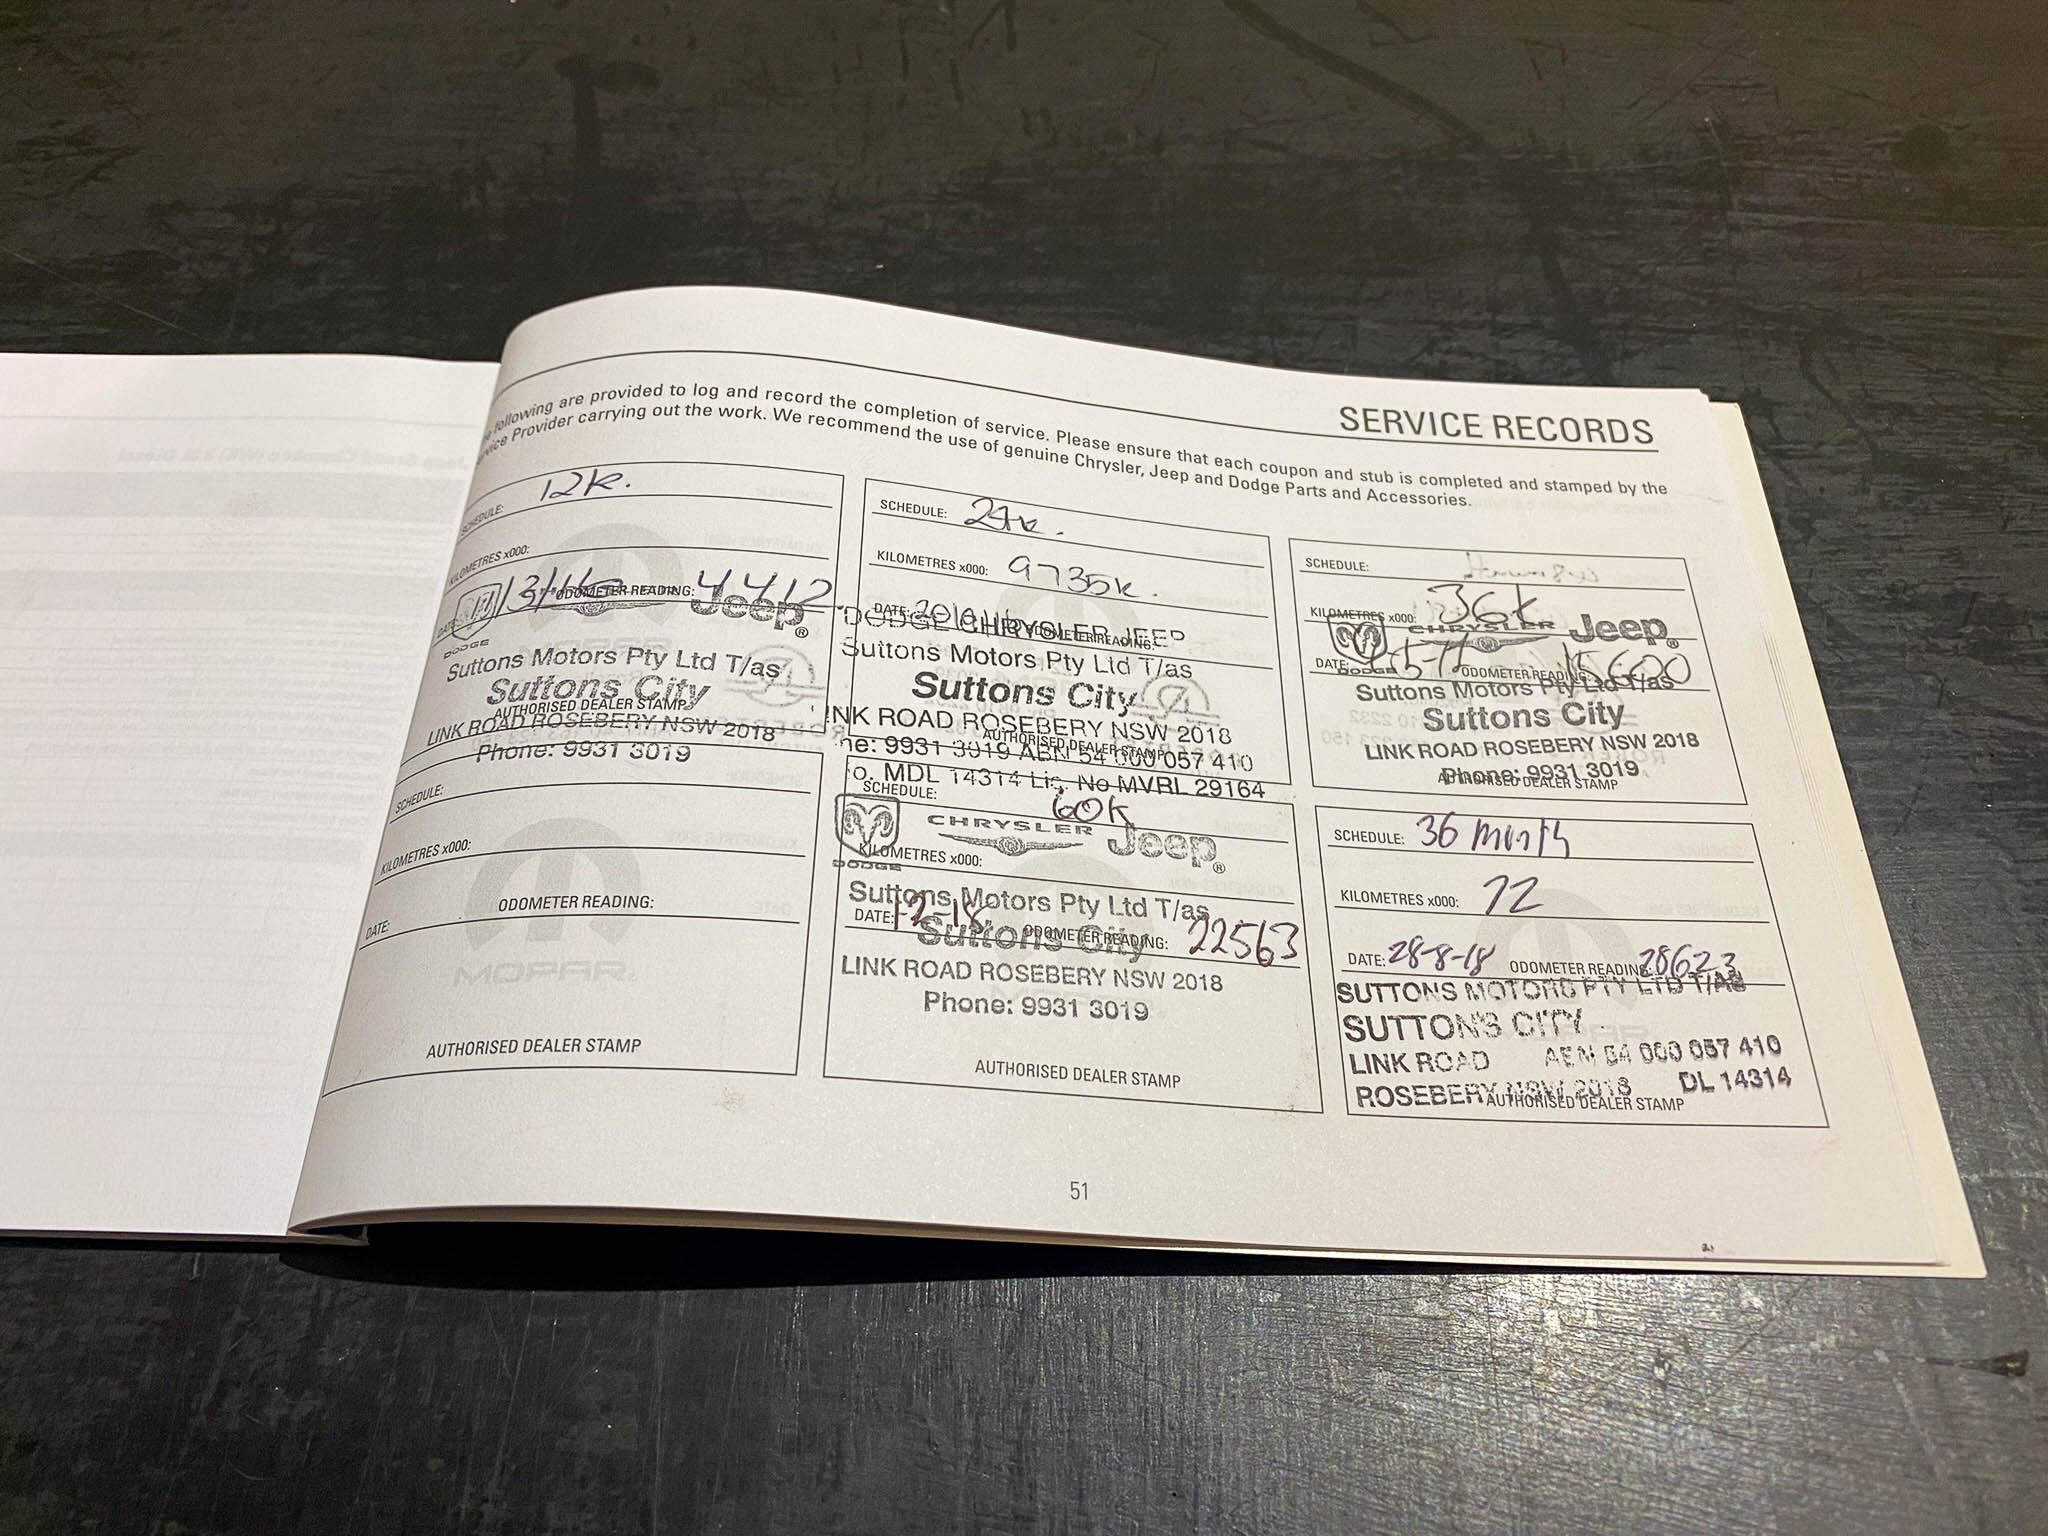 SERVICE RECORDS
following are provided to log and record the completion of service. Please ensure that each coupon and stub is completed and stamped by the
Service Provider carrying out the work. We recommend the use of genuine Chrysler, Jeep and Dodge Parts and Accessories.
SCHEDULE: 12K.
KILOMETRES x000:
DATE: ODOMETER READING: 4412
DODGE Jeep®
Suttons Motors Pty Ltd T/as
Suttons City
AUTHORISED DEALER STAMP
LINK ROAD ROSEBERY NSW 2018
Phone: 9931 3019
SCHEDULE: 24K.
KILOMETRES x000: 9735K.
DATE: ODOMETER READING:
DODGE CHRYSLER JEEP
Suttons Motors Pty Ltd T/as
Suttons City
LINK ROAD ROSEBERY NSW 2018
AUTHORISED DEALER STAMP
ne: 9931 3019 ABN 54 000 057 410
o. MDL 14314 Lic. No MVRL 29164
SCHEDULE:
KILOMETRES x000: 36K
CHRYSLER Jeep®
DODGE
DATE: ODOMETER READING: 15600
Suttons Motors Pty Ltd T/as
Suttons City
LINK ROAD ROSEBERY NSW 2018
Phone: 9931 3019
AUTHORISED DEALER STAMP
SCHEDULE:
KILOMETRES x000:
DATE: ODOMETER READING:
MOPAR®
AUTHORISED DEALER STAMP
SCHEDULE: 60K
CHRYSLER Jeep®
KILOMETRES x000:
DODGE
Suttons Motors Pty Ltd T/as
DATE: 1-2-18 ODOMETER READING: 22563
Suttons City
LINK ROAD ROSEBERY NSW 2018
Phone: 9931 3019
AUTHORISED DEALER STAMP
SCHEDULE: 36 Month
KILOMETRES x000: 72
DATE: 28-8-18 ODOMETER READING: 28623
SUTTONS MOTORS PTY LTD T/AS
SUTTON'S CITY
LINK ROAD ABN 54 000 057 410
ROSEBERY NSW 2018 DL 14314
AUTHORISED DEALER STAMP
51